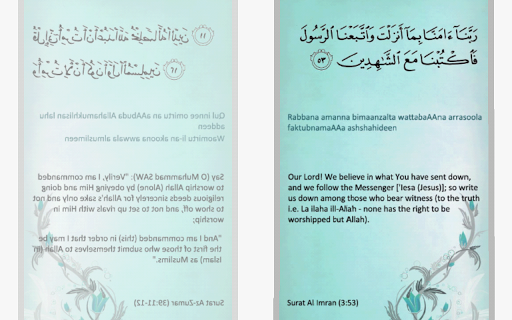 قُلْ إِنِّىٓ أُمِرْتُ أَنْ أَعْبُدَ ٱللَّهَ مُخْلِصًا لَّهُ ٱلدِّينَ ١١
وَأُمِرْتُ لِأَنْ أَكُونَ أَوَّلَ ٱلْمُسْلِمِينَ ١٢
Qul innee omirtu an aAAbuda Allahamukhlisan lahu
addeen
Waomirtu li-an akoona awwala almuslimeen
Say (O Muhammad SAW): "Verily, I am commanded
to worship Allah (Alone) by obeying Him and doing
religious deeds sincerely for Allah's sake only and not
to show off, and not to set up rivals with Him in
worship;
"And I am commanded (this) in order that I may be
the first of those who submit themselves to Allah (in
Islam) as Muslims."
Surat Az-Zumar (39:11-12)
رَبَّنَآ ءَامَنَّا بِمَآ أَنزَلْتَ وَٱتَّبَعْنَا ٱلرَّسُولَ
فَٱكْتُبْنَا مَعَ ٱلشَّٰهِدِينَ ٥٣
Rabbana amanna bimaanzalta wattabaAAna arrasoola
faktubnamaAAa ashshahideen
Our Lord! We believe in what You have sent down,
and we follow the Messenger ['Iesa (Jesus)]; so write
us down among those who bear witness (to the truth
i.e. La ilaha ill-Allah - none has the right to be
worshipped but Allah).
Surat Al Imran (3:53)